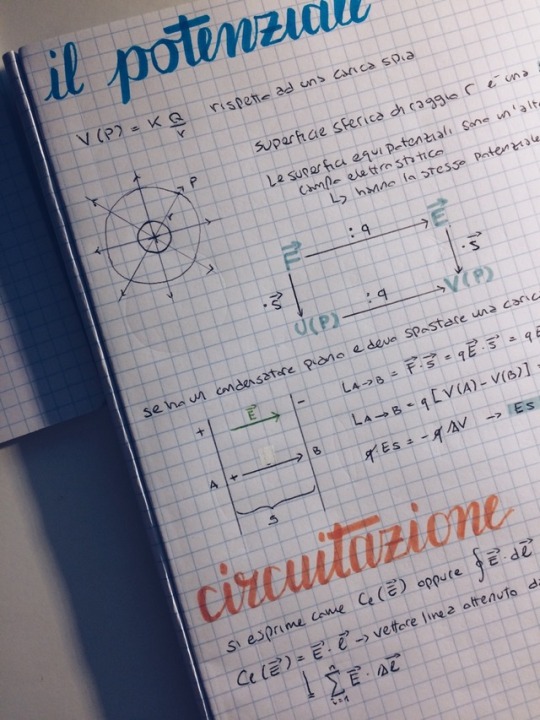 il potenziale
V(P) = K Q/r rispetto ad una carica spia
superficie sferica di raggio r è una
Le superfici equipotenziali sono un'alt
campo elettrostatico
↳ hanno lo stesso potenziale
P
r
F⃗ : q E⃗
· s⃗ · s⃗
U(P) : q V(P)
se ho un condensatore piano e devo spostare una caric
L A→B = F⃗ · s⃗ = q E⃗ · s⃗ = q E
L A→B = q [V(A) - V(B)] =
q Es = - q ΔV → Es
+ E⃗ -
A + B
s
circuitazione
si esprime come Ce(E⃗) oppure ∮ E⃗ · dℓ⃗
Ce(E⃗) = E⃗ · ℓ⃗ → vettore linea ottenuto da
↳ Σ i=1 n E⃗ · Δℓ⃗